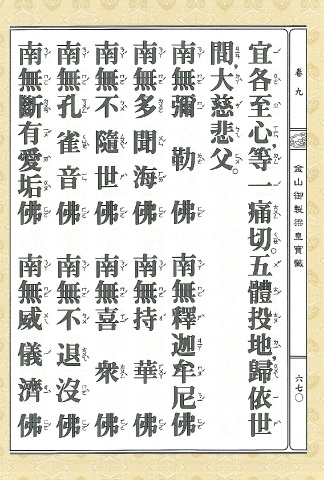 卷九
金山御製梁皇寶懺
六七〇
宜各至心,等一痛切。五體投地,歸依世
間,大慈悲父。
南無彌勒佛　南無釋迦牟尼佛
南無多聞海佛　南無持華佛
南無不隨世佛　南無喜衆佛
南無孔雀音佛　南無不退沒佛
南無斷有愛垢佛　南無威儀濟佛